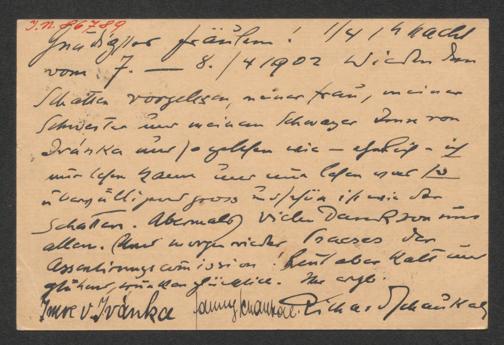 J.N. 86789
Gnädigstes Fräulein! 1/4 1 h Nacht
vom 7. — 8./4 1902 Wieder den
Schatten vorgelesen, meiner Frau, meiner
Schwester und meinem Schwager Imre von
Ivánka und so gelesen wie — ehrlich — ich
nur lesen kann und nur lesen was so
überwältigend gross und schön ist wie der
Schatten. Abermals vielen Dank von uns
allen. Und morgen wieder Praeses der
Assentierungscommission! Heut aber kalt und
glühend, glücklich. Ihr ergb.
Imre v Ivánka Fanny Schaukal. Richard Schaukal